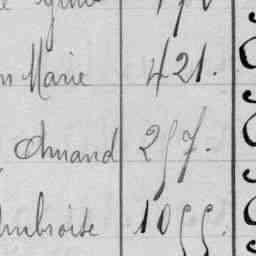 n Marie 421.
Amand 257.
Ambroise 1055.